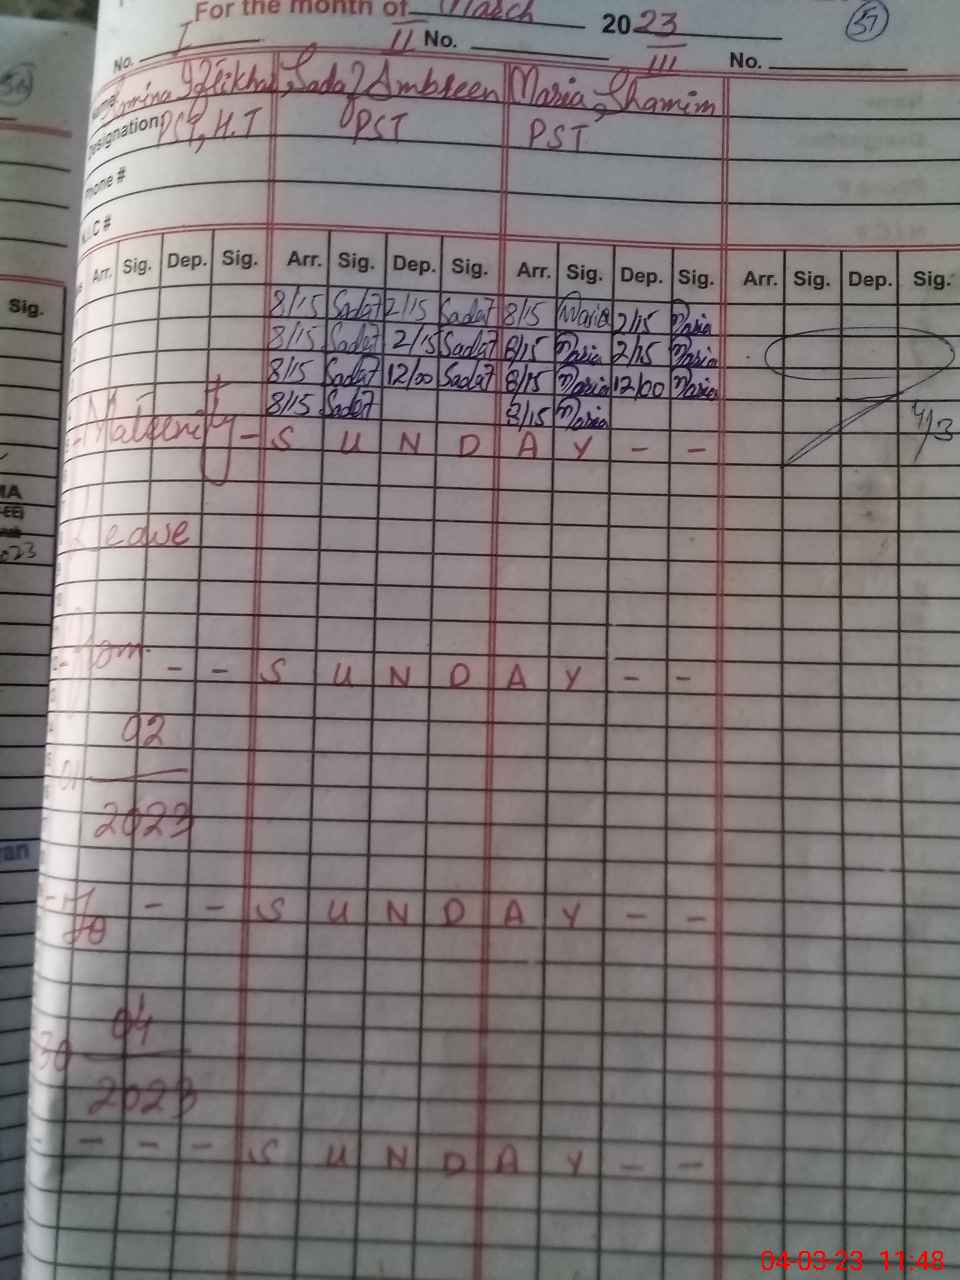 For the month of March 2023
57
No. I II No. III No.
Iftikhar Sadaf Ambreen Maria Shamim
Designation PST, H.T PST PST
Phone #
N.I.C #
Arr. Sig. Dep. Sig. Arr. Sig. Dep. Sig. Arr. Sig. Dep. Sig. Arr. Sig. Dep. Sig.
Sig.
8/15 Sadaf 2/15 Sadaf 8/15 Maria 2/15 Maria
8/15 Sadaf 2/15 Sadaf 8/15 Maria 2/15 Maria
8/15 Sadaf 12/00 Sadaf 8/15 Maria 12/00 Maria
8/15 Sadaf 8/15 Maria
4/3
Maternity - S U N D A Y - -
Leave
2023
From - - S U N D A Y - -
02
01
2023
To - - S U N D A Y - -
04
30
2023
- - - S U N D A Y - -
04-03-23 11:48